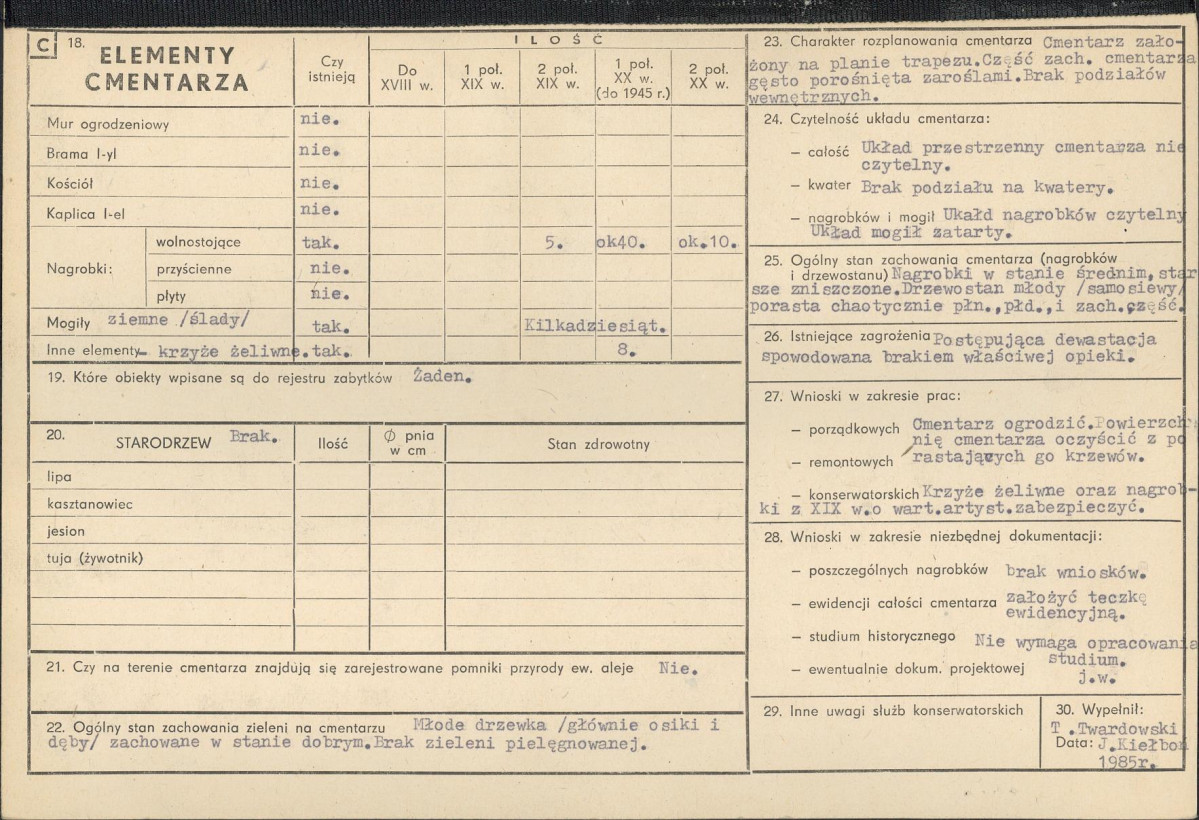 C 18. ELEMENTY CMENTARZA
Czy istnieją
ILOŚĆ
Do XVIII w.
1 poł. XIX w.
2 poł. XIX w.
1 poł. XX w. (do 1945 r.)
2 poł. XX w.
Mur ogrodzeniowy nie.
Brama I-yl nie.
Kościół nie.
Kaplica I-el nie.
Nagrobki: wolnostojące tak. 5. ok40. ok.10.
przyścienne nie.
płyty nie.
Mogiły ziemne /ślady/ tak. Kilkadziesiąt.
Inne elementy- krzyże żeliwne. tak. 8.
19. Które obiekty wpisane są do rejestru zabytków Żaden.
20. STARODRZEW Brak. Ilość Ø pnia w cm Stan zdrowotny
lipa
kasztanowiec
jesion
tuja (żywotnik)
21. Czy na terenie cmentarza znajdują się zarejestrowane pomniki przyrody ew. aleje Nie.
22. Ogólny stan zachowania zieleni na cmentarzu Młode drzewka /głównie osiki i
dęby/ zachowane w stanie dobrym.Brak zieleni pielęgnowanej.
23. Charakter rozplanowania cmentarza Cmentarz zało-
żony na planie trapezu.Część zach. cmentarza
gęsto porośnięta zaroślami.Brak podziałów
wewnętrznych.
24. Czytelność układu cmentarza:
— całość Układ przestrzenny cmentarza nie
czytelny.
— kwater Brak podziału na kwatery.
— nagrobków i mogił Ukałd nagrobków czytelny
Układ mogił zatarty.
25. Ogólny stan zachowania cmentarza (nagrobków
i drzewostanu) Nagrobki w stanie średnim, star
sze zniszczone.Drzewostan młody /samosiewy/
porasta chaotycznie płn.,płd.,i zach.część.
26. Istniejące zagrożenia Postępująca dewastacja
spowodowana brakiem właściwej opieki.
27. Wnioski w zakresie prac:
— porządkowych Cmentarz ogrodzić.Powierzch
nię cmentarza oczyścić z po
— remontowych rastających go krzewów.
— konserwatorskich Krzyże żeliwne oraz nagrob-
ki z XIX w.o wart.artyst.zabezpieczyć.
28. Wnioski w zakresie niezbędnej dokumentacji:
— poszczególnych nagrobków brak wniosków.
— ewidencji całości cmentarza założyć teczkę
ewidencyjną.
— studium historycznego Nie wymaga opracowania
studium.
— ewentualnie dokum. projektowej j.w.
29. Inne uwagi służb konserwatorskich
30. Wypełnił:
T .Twardowski
Data: J.Kiełboń
1985r.